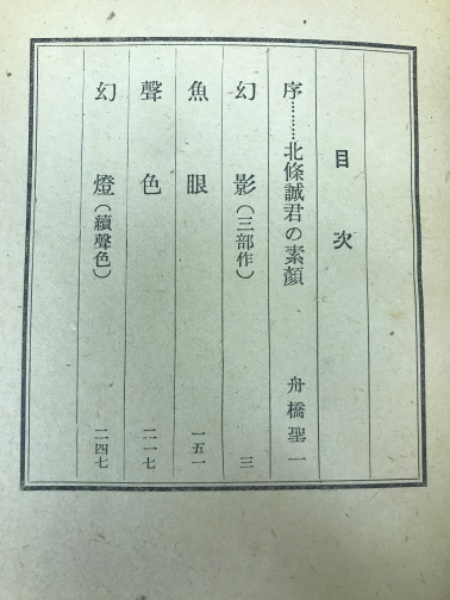 目次
序………北條誠君の素顏 舟橋聖一
幻影(三部作) 三
魚眼 一五一
聲色 二一七
幻燈(續聲色) 二四七